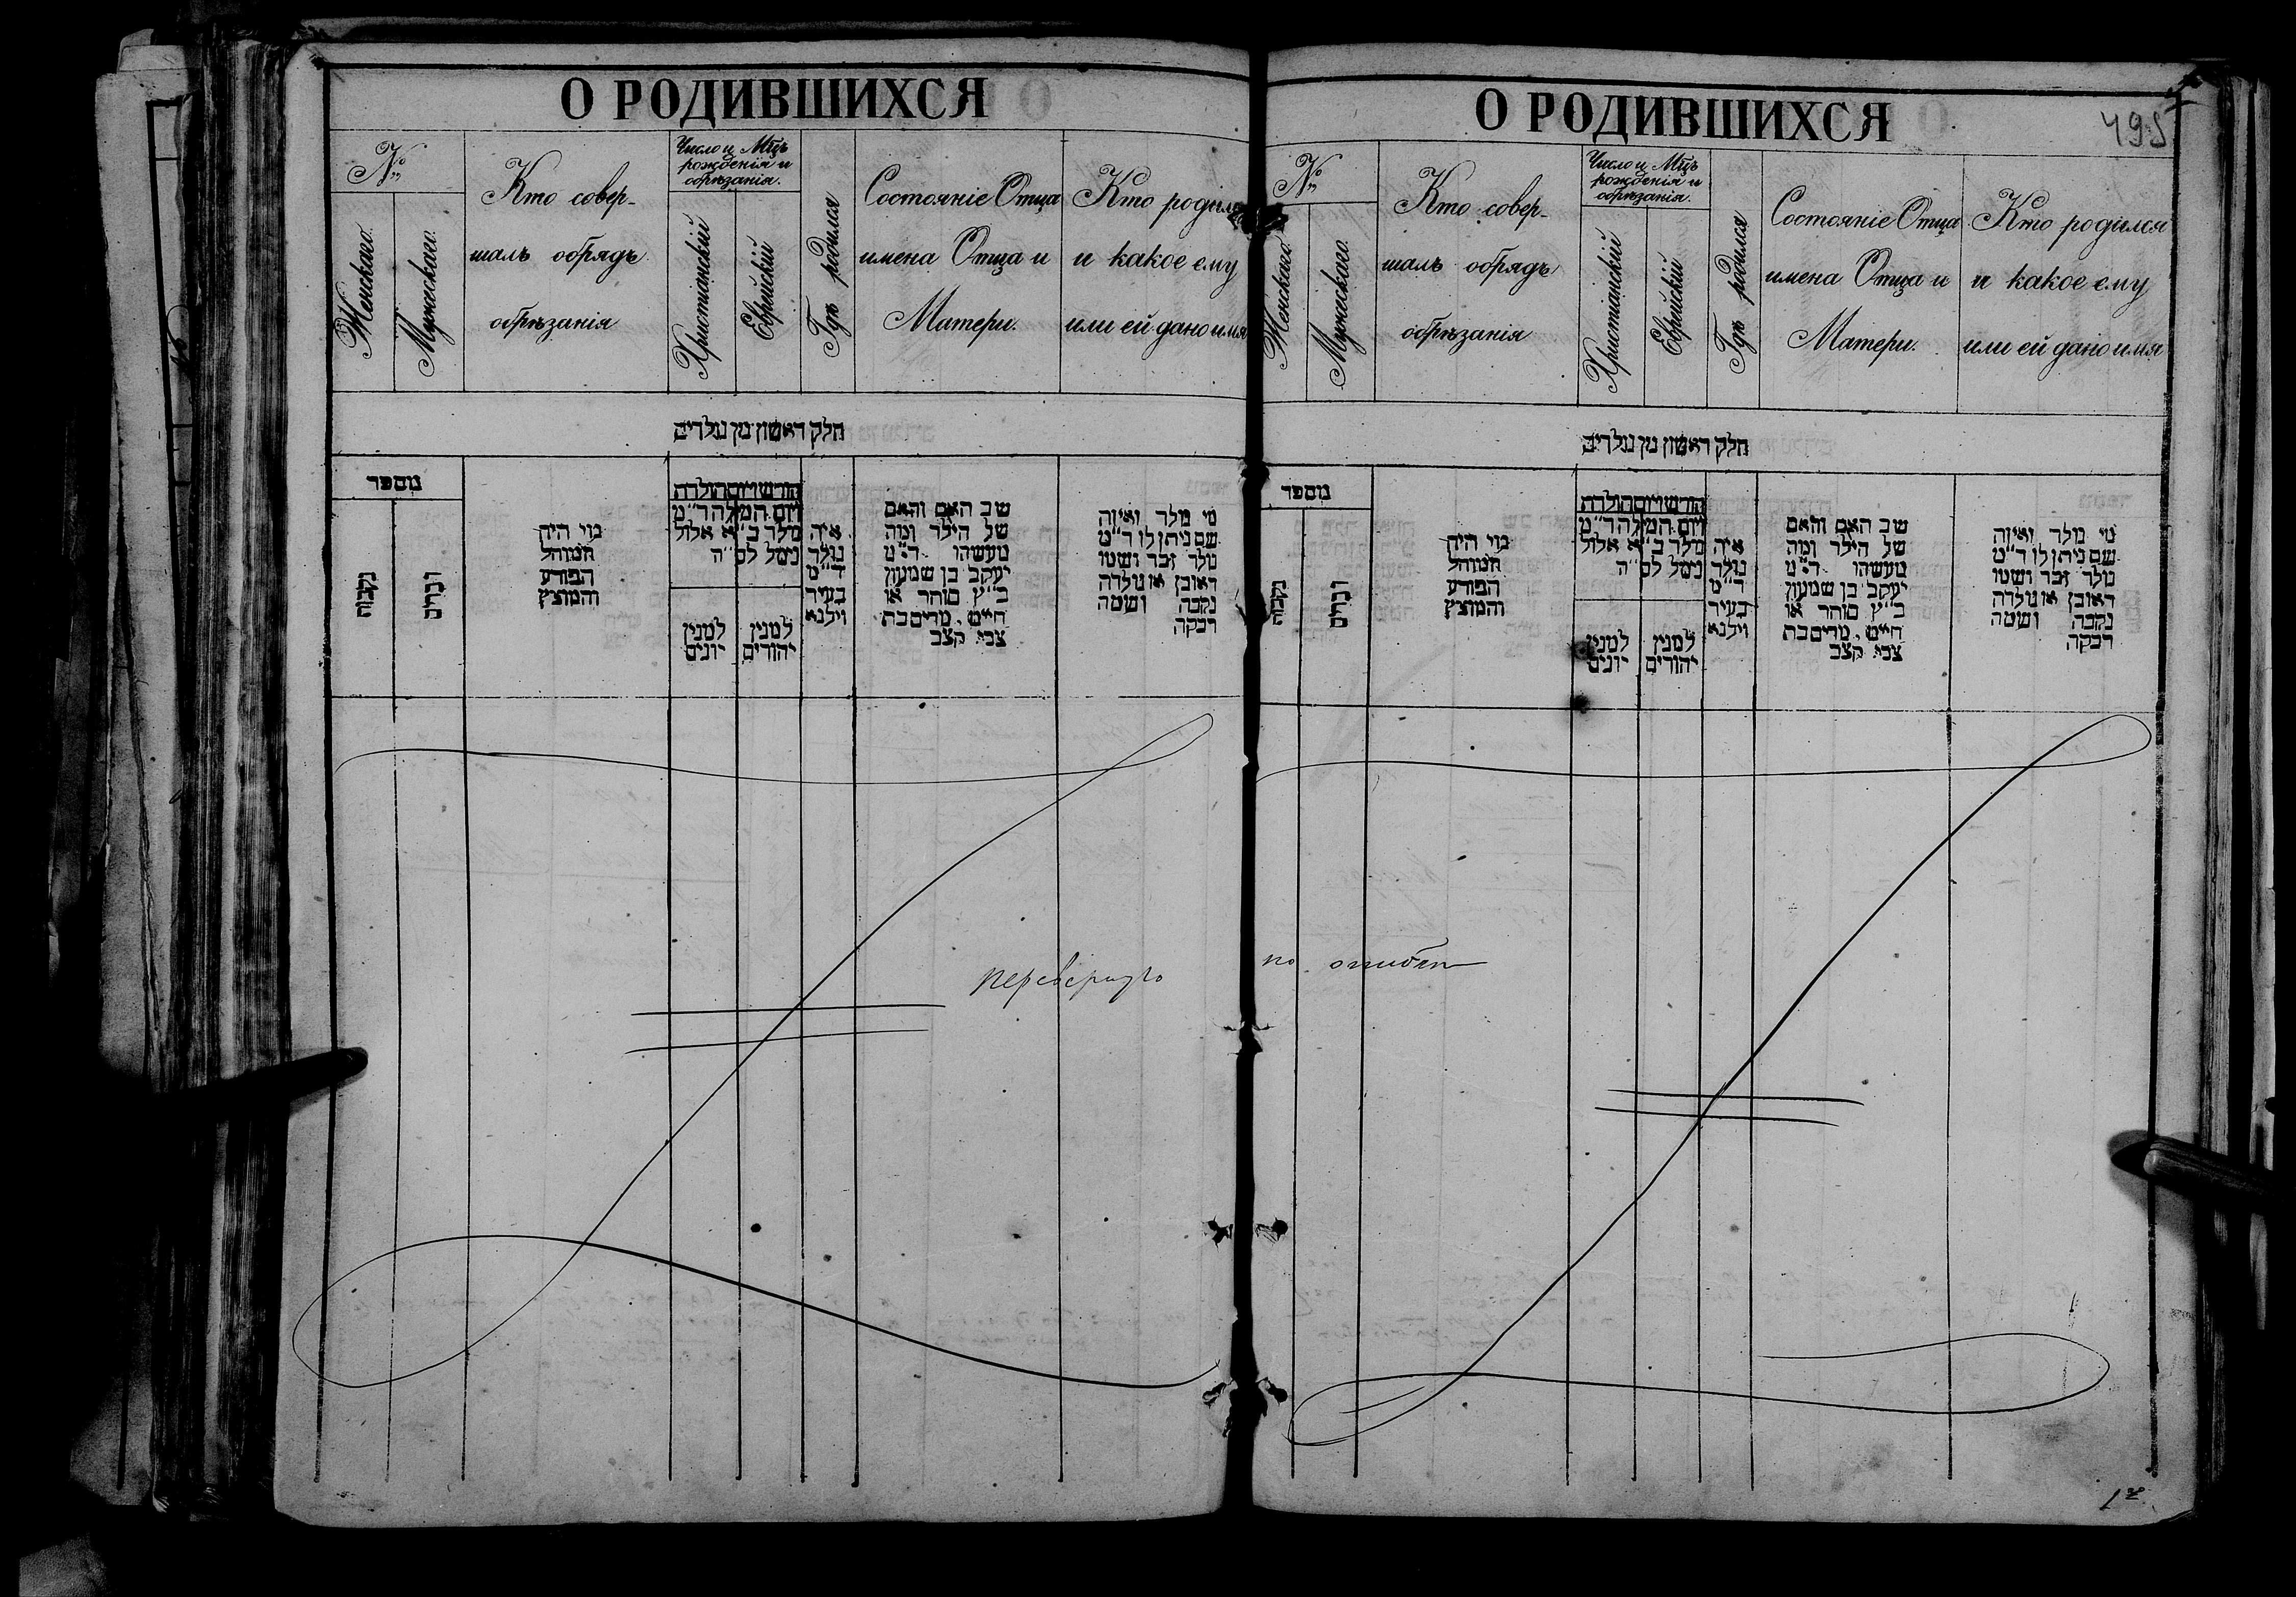 О РОДИВШИХСЯ
№
Женскаго.
Мужескаго.
Кто совер-
шалъ обрядъ
обрѣзанія
Число и Мцъ
рожденія и
обрѣзанія.
Христіанскій
Еврейскій
Гдѣ родился
Состояніе Отца
имена Отца и
Матери.
Кто родился
и какое ему
или ей дано имя
חלק ראשון מן נולדים
מספר
נקבות
זכרים
מי היה
המוהל
הפורע
והמוצץ
חודש ויום הולדת
ויום המילה ד״מ
מלד כ״א אלול
נימל לס״ה
למנין
יונים
למנין
יהודים
איה
נולד
ד״מ
בעיר
וילנא
שב האם והאם
של הילד ומה
מעשהו ד״מ
יעקב בן שמעון
כ״ץ סוחר או
חייט, מרים בת
צבי קצב
מי נולד ואיזה
שם ניתן לו ד״מ
נולד זכר ושמו
ראובן או נולדה
נקבה ושמה
רבקה
перевернуто
О РОДИВШИХСЯ
495
№
Женскаго.
Мужескаго.
Кто совер-
шалъ обрядъ
обрѣзанія
Число и Мцъ
рожденія и
обрѣзанія.
Христіанскій
Еврейскій
Гдѣ родился
Состояніе Отца
имена Отца и
Матери.
Кто родился
и какое ему
или ей дано имя
חלק ראשון מן נולדים
מספר
נקבות
זכרים
מי היה
המוהל
הפורע
והמוצץ
חודש ויום הולדת
ויום המילה ד״מ
מלד כ״א אלול
נימל לס״ה
למנין
יונים
למנין
יהודים
איה
נולד
ד״מ
בעיר
וילנא
שב האם והאם
של הילד ומה
מעשהו ד״מ
יעקב בן שמעון
כ״ץ סוחר או
חייט, מרים בת
צבי קצב
מי נולד ואיזה
שם ניתן לו ד״מ
נולד זכר ושמו
ראובן או נולדה
נקבה ושמה
רבקה
по ошибке